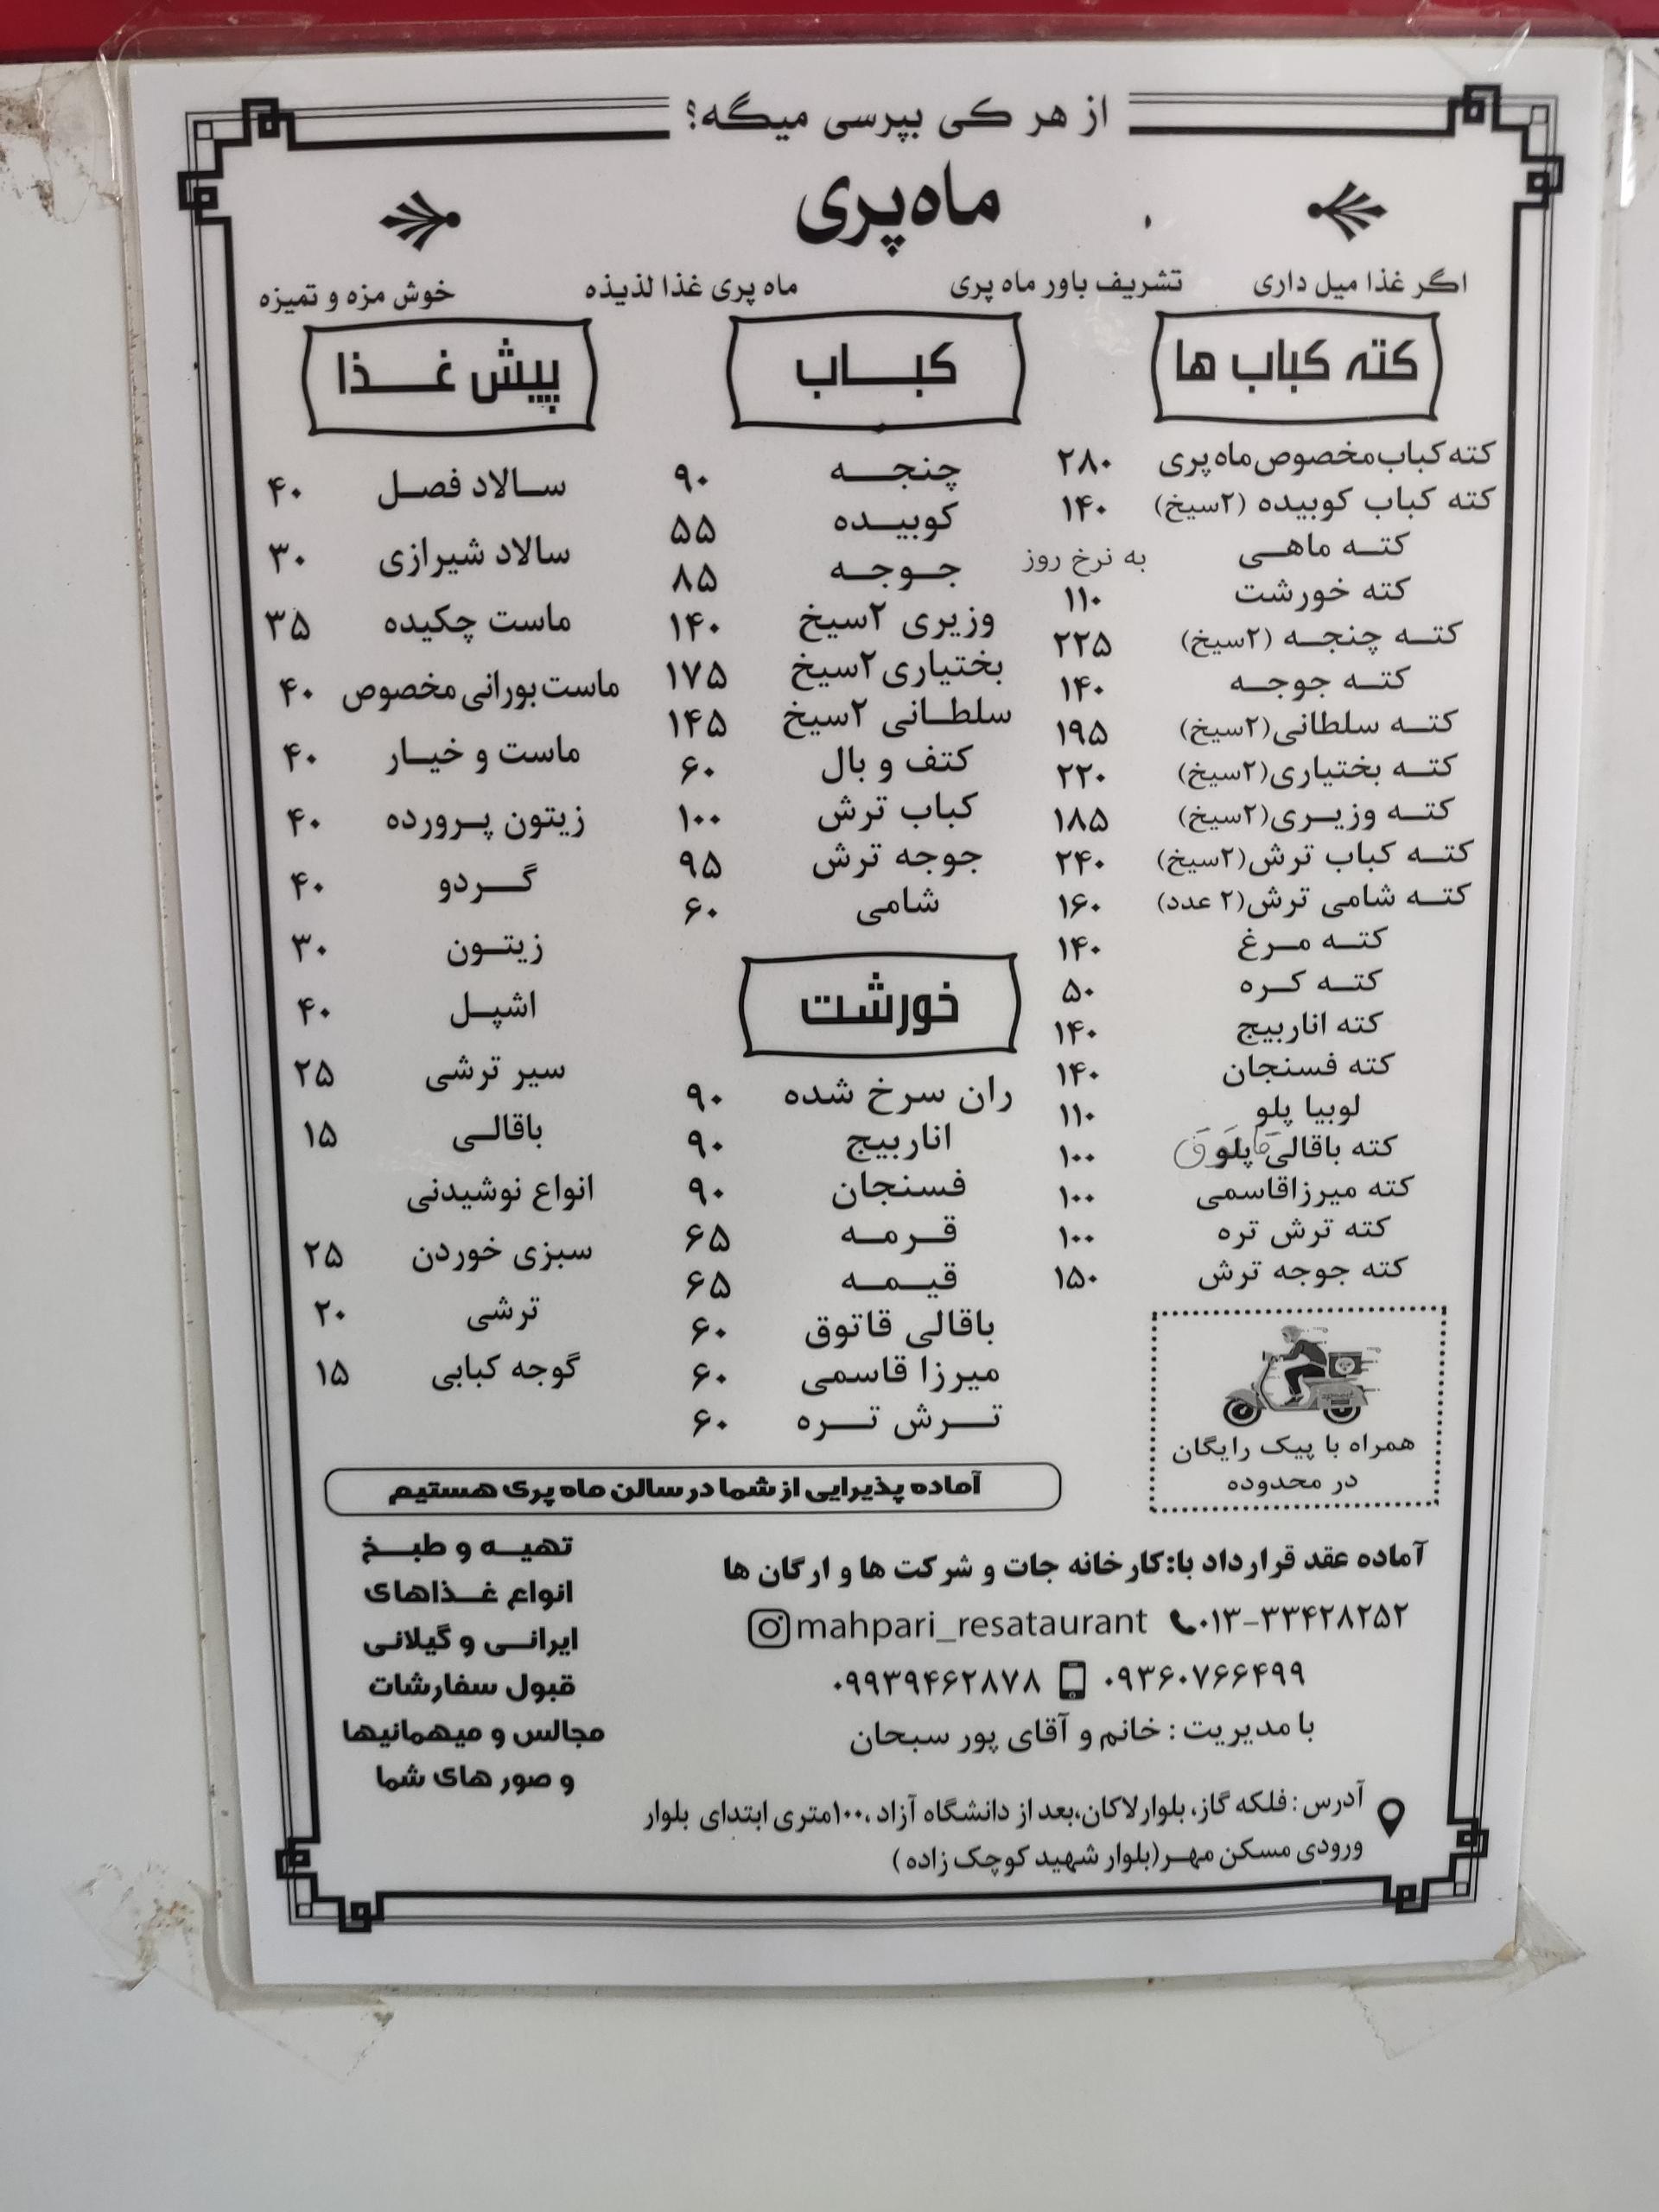 از هر کی بپرسی میگه؟
ماه پری
اگر غذا میل داری تشریف باور ماه پری ماه پری غذا لذیذه خوش مزه و تمیزه
کته کباب ها
کته کباب مخصوص ماه پری ۲۸۰
کته کباب کوبیده (۲سیخ) ۱۴۰
کته ماهی به نرخ روز
کته خورشت ۱۱۰
کته چنجه (۲سیخ) ۲۲۵
کته جوجه ۱۴۰
کته سلطانی(۲سیخ) ۱۹۵
کته بختیاری(۲سیخ) ۲۲۰
کته وزیری(۲سیخ) ۱۸۵
کته کباب ترش(۲سیخ) ۲۴۰
کته شامی ترش(۲ عدد) ۱۶۰
کته مرغ ۱۴۰
کته کره ۵۰
کته اناربیج ۱۴۰
کته فسنجان ۱۴۰
لوبیا پلو ۱۱۰
کته باقالی پلو ۱۰۰
کته میرزاقاسمی ۱۰۰
کته ترش تره ۱۰۰
کته جوجه ترش ۱۵۰
همراه با پیک رایگان
در محدوده
کباب
چنجه ۹۰
کوبیده ۵۵
جوجه ۸۵
وزیری ۲سیخ ۱۴۰
بختیاری ۲سیخ ۱۷۵
سلطانی ۲سیخ ۱۴۵
کتف و بال ۶۰
کباب ترش ۱۰۰
جوجه ترش ۹۵
شامی ۶۰
خورشت
ران سرخ شده ۹۰
اناربیج ۹۰
فسنجان ۹۰
قرمه ۶۵
قیمه ۶۵
باقالی قاتوق ۶۰
میرزا قاسمی ۶۰
ترش تره ۶۰
پیش غذا
سالاد فصل ۴۰
سالاد شیرازی ۳۰
ماست چکیده ۳۵
ماست بورانی مخصوص ۴۰
ماست و خیار ۴۰
زیتون پرورده ۴۰
گردو ۴۰
زیتون ۳۰
اشپل ۴۰
سیر ترشی ۲۵
باقالی ۱۵
انواع نوشیدنی
سبزی خوردن ۲۵
ترشی ۲۰
گوجه کبابی ۱۵
آماده پذیرایی از شما در سالن ماه پری هستیم
آماده عقد قرارداد با:کارخانه جات و شرکت ها و ارگان ها
۰۱۳-۳۳۴۲۸۲۵۲ mahpari_resataurant
۰۹۳۶۰۷۶۶۴۹۹ ۰۹۹۳۹۴۶۲۸۷۸
با مدیریت : خانم و آقای پور سبحان
آدرس : فلکه گاز، بلوار لاکان،بعد از دانشگاه آزاد ،۱۰۰متری ابتدای بلوار
ورودی مسکن مهر(بلوار شهید کوچک زاده )
تهیه و طبخ
انواع غذاهای
ایرانی و گیلانی
قبول سفارشات
مجالس و میهمانیها
و صور های شما